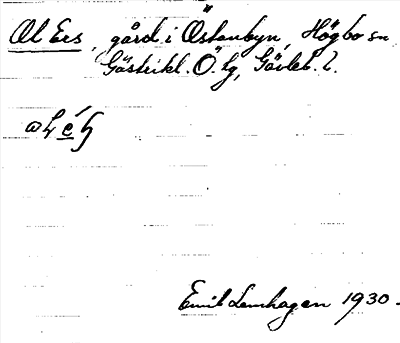 Ol Ers, gård i Östanbyn, Högbo sn
Gästrikl. Ö. hg, Gävleb. l.
Emil Lenhagen 1930